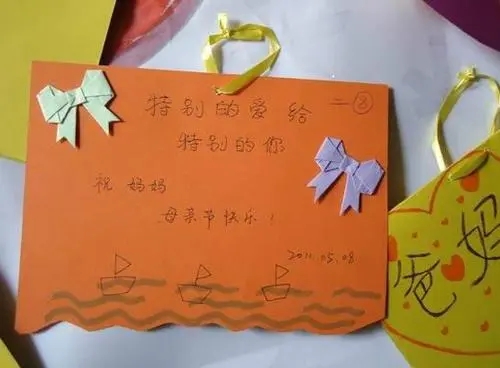 特别的爱给 二⑧
特别的你
祝妈妈
母亲节快乐！
2011.05.08
妈
爸